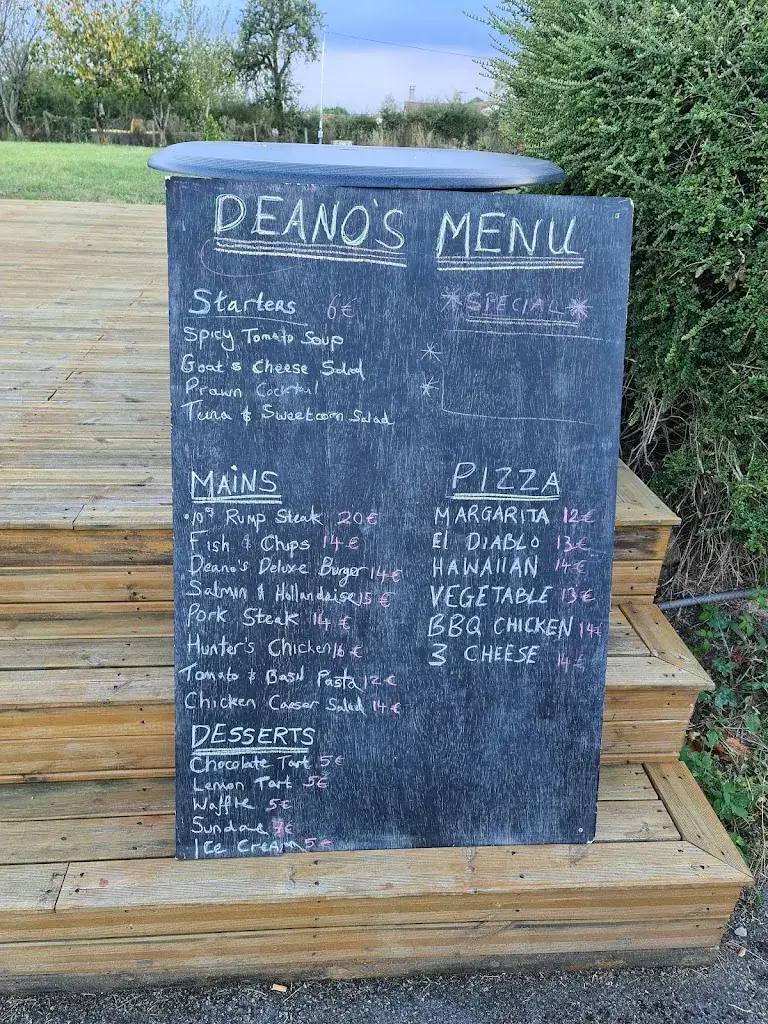 DEANO'S MENU
Starters 6€
Spicy Tomato Soup
Goats Cheese Salad
Prawn Cocktail
Tuna & Sweetcorn Salad
*SPECIAL*
MAINS
Rump Steak 20€
Fish & Chips 14€
Deano's Deluxe Burger 14€
Salmon & Hollandaise 15€
Pork Steak 14€
Hunter's Chicken 16€
Tomato & Basil Pasta 12€
Chicken Caesar Salad 14€
DESSERTS
Chocolate Tart 5€
Lemon Tart 5€
Waffle 5€
Sundae 7€
Ice Cream 5€
PIZZA
MARGARITA 12€
El DIABLO 13€
HAWAIIAN 14€
VEGETABLE 13€
BBQ CHICKEN 14€
3 CHEESE 14€